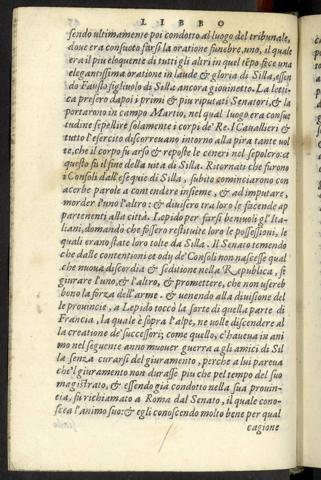 LIBRO
sendo ultimamente poi condotto al luogo del tribunale,
dove era consueto farsi la oratione funebre, uno, il quale
era il piu eloquente di tutti gli altri in quel tẽpo fece una
elegantissima oratione in laude & gloria di Silla, essen
do Fausto figliuolo di Silla ancora giovinetto. La letti-
ca presero dapoi i primi & piu riputati Senatori, & la
portarono in campo Martio, nel qual luogo era consue
tudine sepellire solamente i corpi de' Re. I Cavallieri &
tutto l'esercito discorrevano intorno alla pira tante vol
te, che il corpo fu arso & reposte le ceneri nel sepolcro: et
questo fu il fine della vita di Silla. Ritornati che furono
i Consoli dall'esequie di Silla, subito cominciarono con
acerbe parole a contendere insieme, & ad imputare,
morder l'uno l'altro: & divisero tra loro le facende ap
partenenti alla città. Lepido per farsi benivoli gl'Ita-
liani, domandò che fossero restituite loro le possessioni, le
quali erano state loro tolte da Silla. Il Senato temendo
che dalle contentioni et odij de' Consoli non nascesse qual
che nuova discordia & seditione nella Republica, fe
giurare l'uno, & l'altro, & promettere, che non usereb
bono la forza dell'arme. & uenendo alla divisione del
le provincie, a Lepido toccò la sorte di quella parte di
Francia, la quale è sopra l'alpe, ne volle discendere al
la creatione de' successori; come quello, c'haueva in ani
mo nel seguente anno muover guerra a gli amici di Sil
la senza curarsi del giuramento, perche a lui pareua
che'l giuramento non durasse piu che pel tempo del suo
magistrato, & essendo già condotto nella sua provin-
cia, fu richiamato a Roma dal Senato, il quale cono-
scea l'animo suo: & egli conoscendo molto bene per qual
cagione